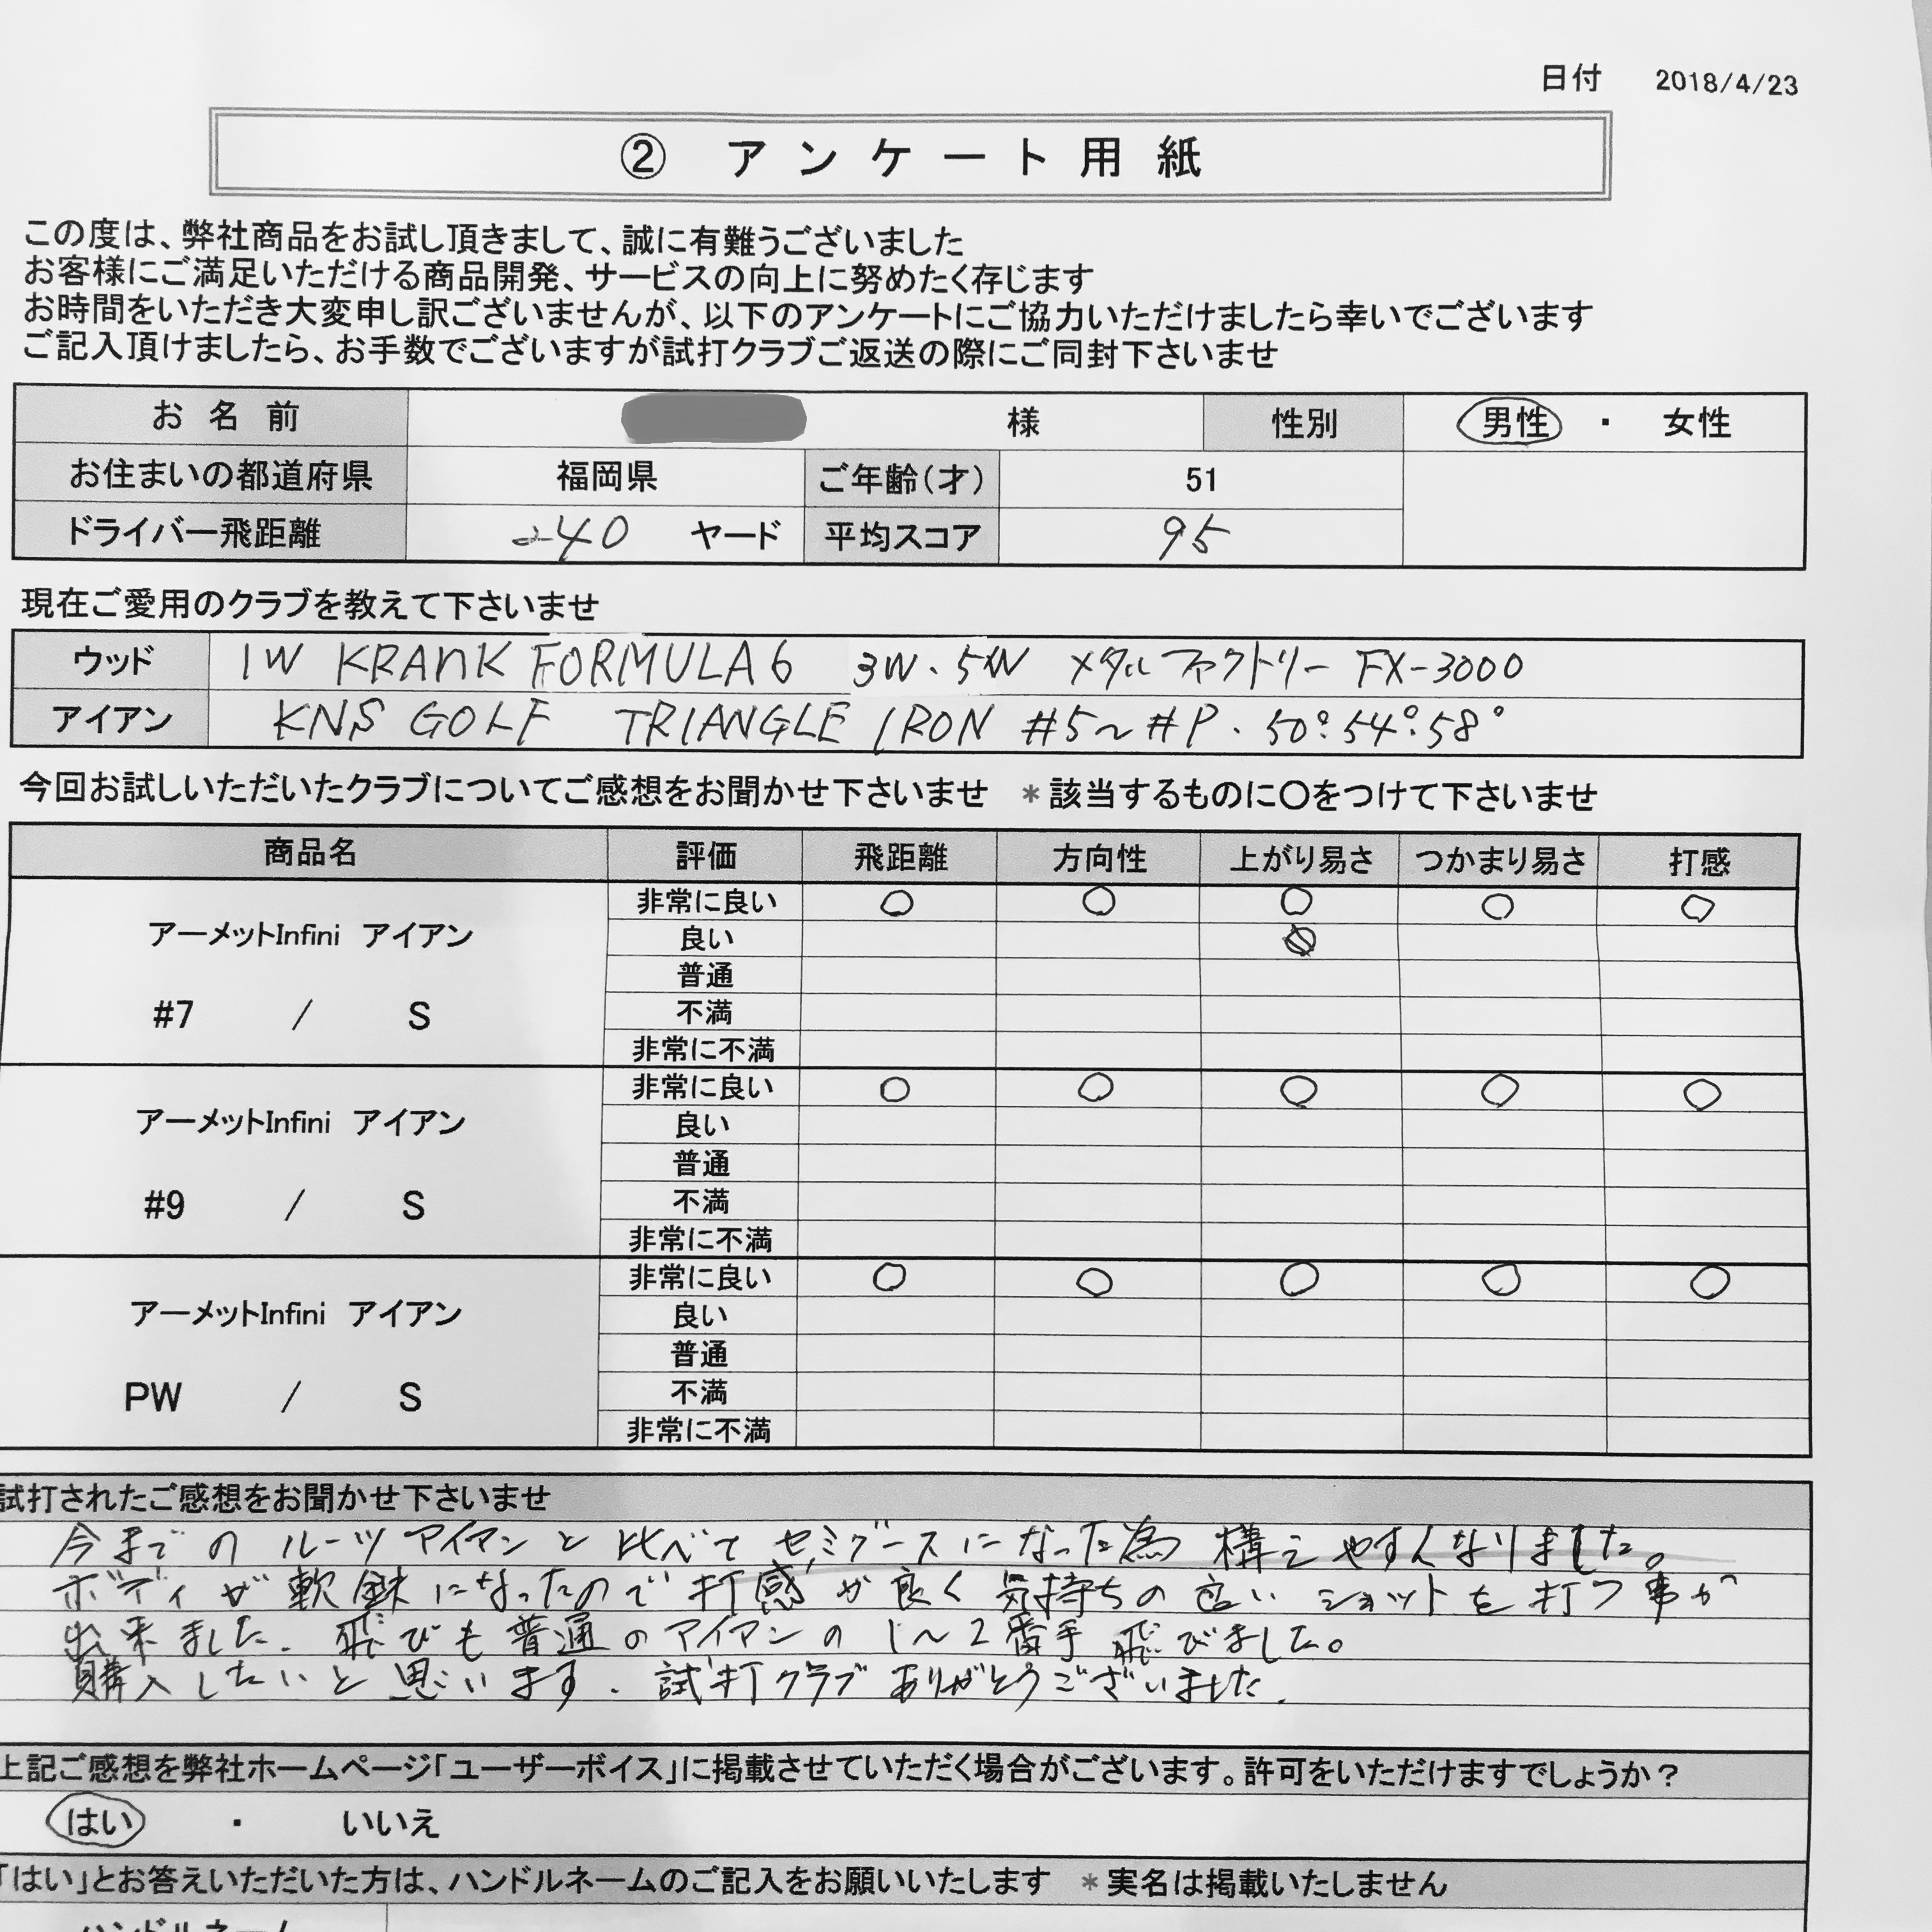 日付 2018/4/23
② アンケート用紙
この度は、弊社商品をお試し頂きまして、誠に有難うございました
お客様にご満足いただける商品開発、サービスの向上に努めたく存じます
お時間をいただき大変申し訳ございませんが、以下のアンケートにご協力いただけましたら幸いでございます
ご記入頂けましたら、お手数でございますが試打クラブご返送の際にご同封下さいませ
お名前 様 性別 男性 ・ 女性
お住まいの都道府県 福岡県 ご年齢(才) 51
ドライバー飛距離 240 ヤード 平均スコア 95
現在ご愛用のクラブを教えて下さいませ
ウッド 1W KRANK FORMULA6 3W・5W メタルファクトリー FX-3000
アイアン KNS GOLF TRIANGLE IRON #5~#P・50°54°58°
今回お試しいただいたクラブについてご感想をお聞かせ下さいませ *該当するものに〇をつけて下さいませ
商品名 評価 飛距離 方向性 上がり易さ つかまり易さ 打感
アーメットInfini アイアン
#7 / S
非常に良い 〇 〇 〇 〇 〇
良い
普通
不満
非常に不満
アーメットInfini アイアン
#9 / S
非常に良い 〇 〇 〇 〇 〇
良い
普通
不満
非常に不満
アーメットInfini アイアン
PW / S
非常に良い 〇 〇 〇 〇 〇
良い
普通
不満
非常に不満
試打されたご感想をお聞かせ下さいませ
今までの ルーツアイアンと比べて セミグースになった為 構えやすくなりました。
ボディが軟鉄になったので打感が良く気持ちの良いショットを打つ事が
出来ました。飛びも普通のアイアンの1~2番手飛びました。
購入したいと思います。試打クラブありがとうございました。
上記ご感想を弊社ホームページ「ユーザーボイス」に掲載させていただく場合がございます。許可をいただけますでしょうか?
はい ・ いいえ
「はい」とお答えいただいた方は、ハンドルネームのご記入をお願いいたします *実名は掲載いたしません
ハンドルネーム